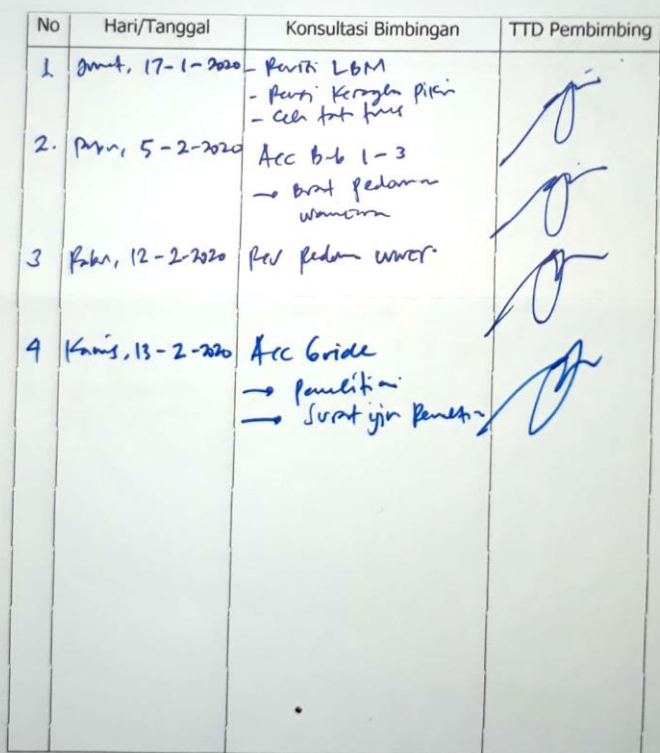 No Hari/Tanggal Konsultasi Bimbingan TTD Pembimbing
1 Jumat, 17-1-2020 - Revisi LBM
- Revisi Kerangka Pikir
- Cek
2. Rabu, 5-2-2020 Acc Bab 1-3
→ Buat Pedoman
wawancara
3 Rabu, 12-2-2020 Rev Pedom wwcr.
4 Kamis, 13-2-2020 Acc Gride
→ Penelitian
→ Surat ijin Penelitian